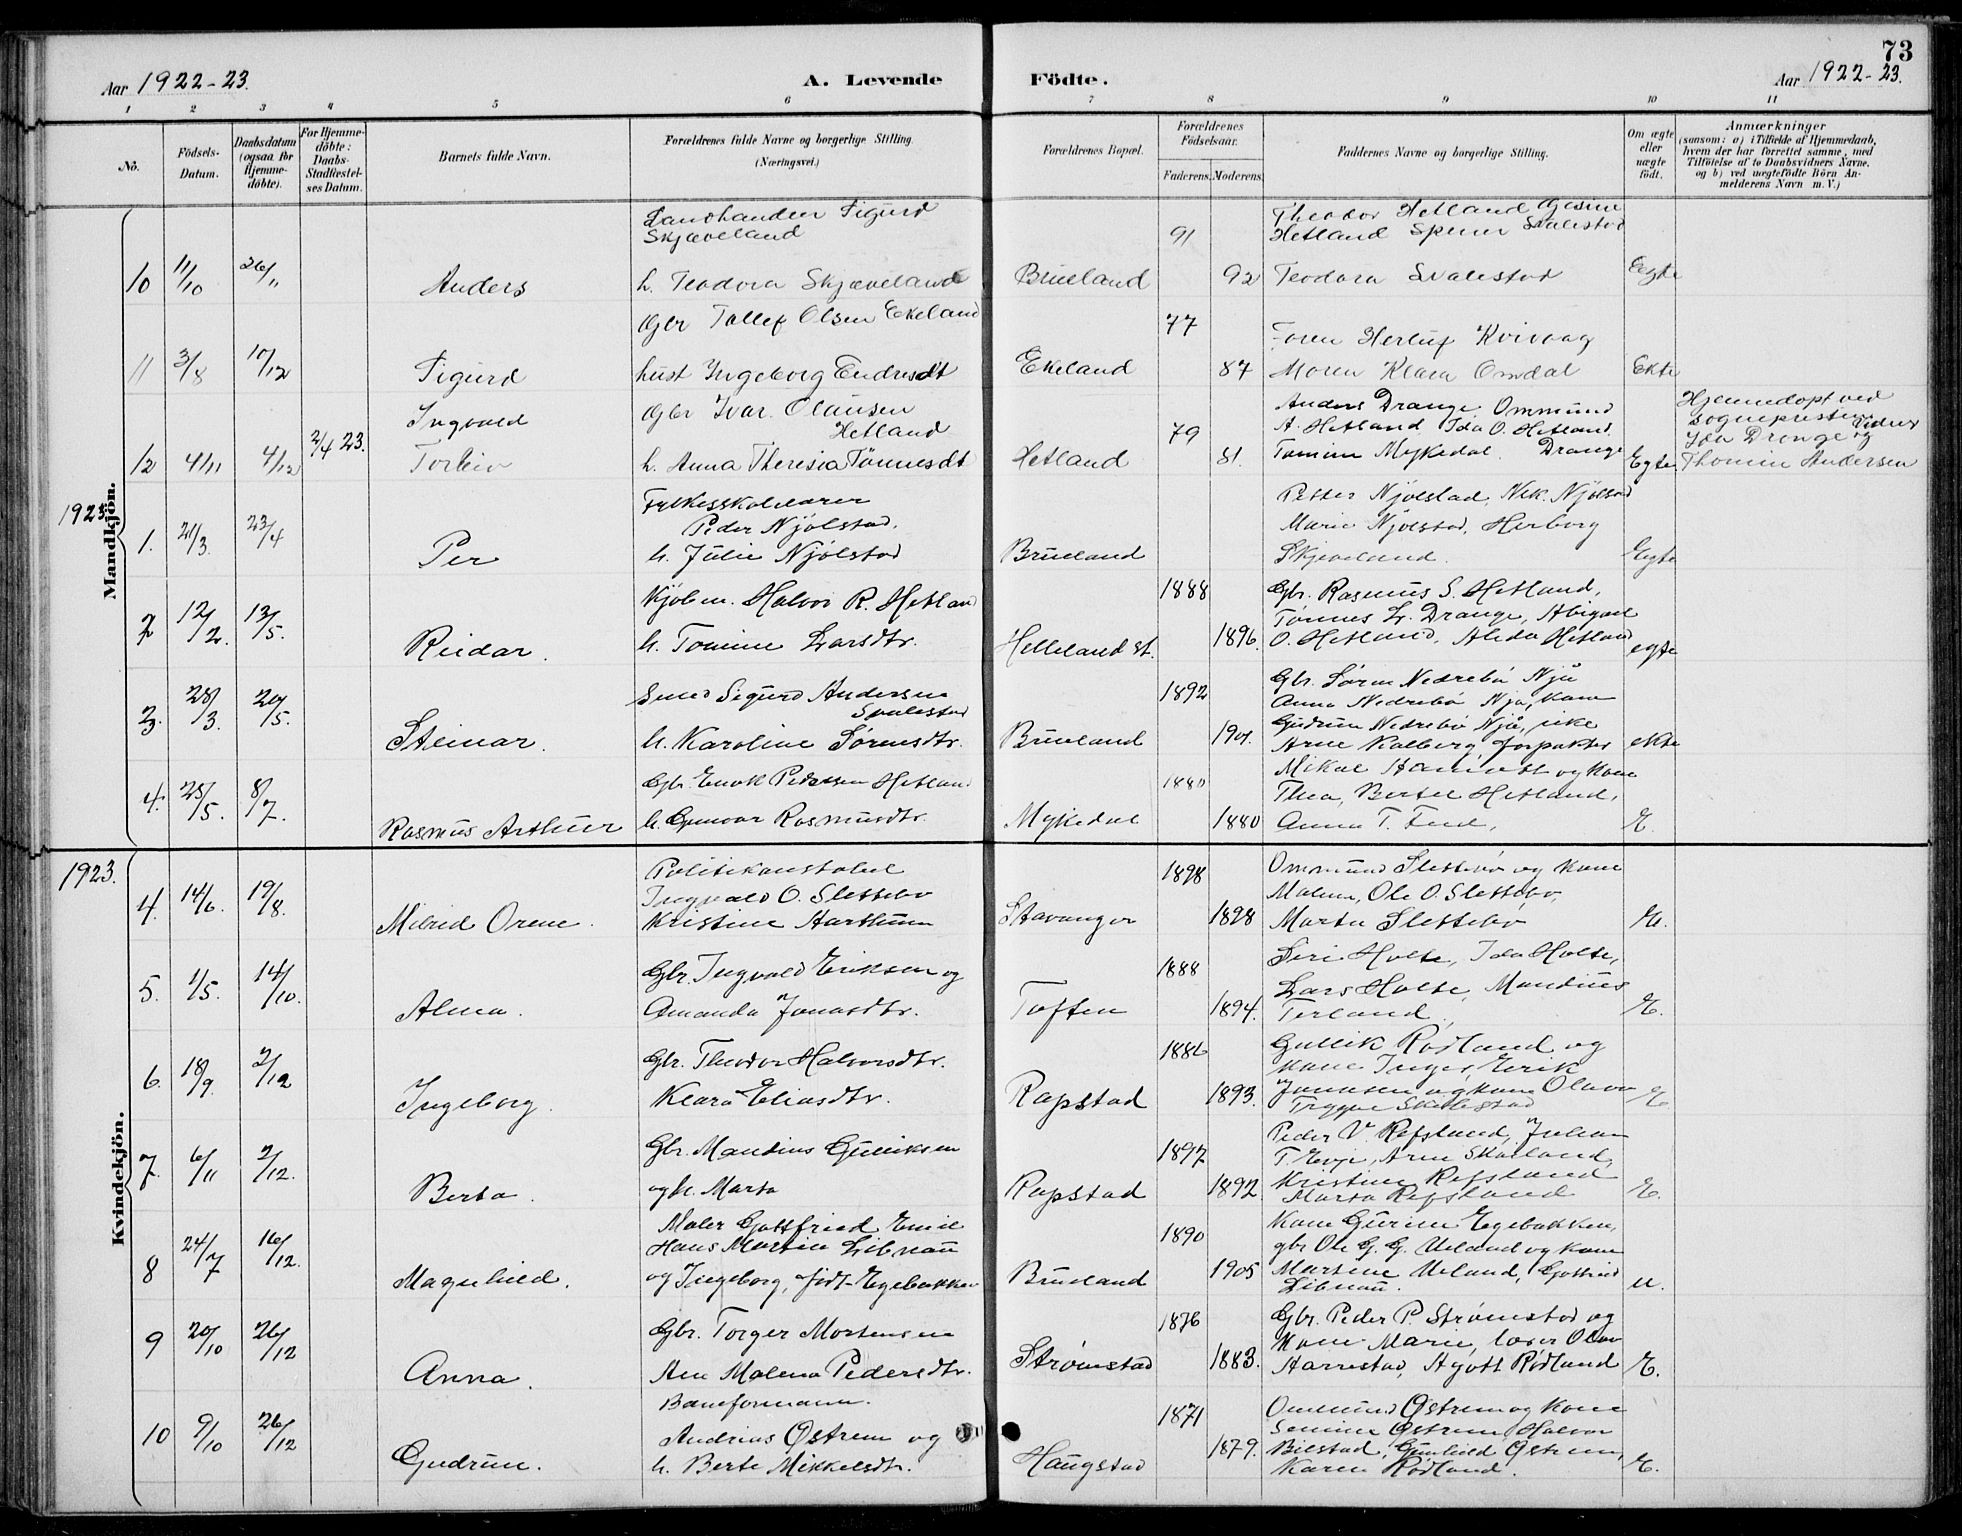 73
Aar 1922-23.
A. Levende Födte.
Aar 1922-23.
1 2 3 4 5 6 7 8 9 10 11
No.
Födsels-Datum.
Daabsdatum (ogsaa for Hjemme-döbte).
For Hjemme-döbte: Daabs-Stadfæstel-ses Datum.
Barnets fulde Navn.
Forældrenes fulde Navne og borgerlige Stilling. (Næringsvei.)
Forældrenes Bopæl.
Forældrenes Födselsaar.
Faderens. Moderens.
Faddernes Navne og borgerlige Stilling.
Om ægte eller uægte födt.
Anmærkninger
(sansom: a) i Tilfælde af Hjemmedaab,
hvem der har forrettet samme, med
Tilföielse af to Daabsvidners Navne,
og b) ved uægtefödte Börn An-
melderens Navn m. V.)
Mandkjön.
10 11/10 26/11 Anders
Landhandler Sigurd
Skjæveland
h. Teodora Skjæveland
Brueland 91 92
Theodor Hetland Gesine
Hetland Svalestad
Teodora Svalestad
Egte
11 3/8 10/12 Sigurd
Gbr Tollef Olsen Ekeland
hust Ingeborg Endresdt
Ekeland 77 87
Foren Herluf Kvivaag
Moren Klara Omdal
Ekte
12 4/11 4/12 2/4 23.
Ingvald
Torleiv
Gbr Ivar Olausen
Hetland
h. Anna Theresia Tønnesdt
Hetland 79 81.
Anders Drange Ommund
A. Hetland Ida O. Hetland
Tomine Mykedal Drange
Egte
Hjemmedøpt ved
sognepresten
Ida Drange og
Thomine Andersen
1923.
1. 21/3. 23/4 Per
Fylkesskolelærer
Peder Njølstad.
h. Julie Njølstad
Brueland
Petter Njølstad, Nik. Njølstad
Marie Njølstad, Herborg
Skjeveland.
Egte
2 12/2. 13/5. Reidar.
Kjøbm. Halvor R. Hetland
h. Tomine Larsdtr.
Helleland st. 1888 1896.
Gbr. Rasmus S. Hetland,
Tønnes L. Drange, Abigael
O. Hetland, Alida Hetland
egte
3. 28/3. 20/5. Steinar.
Smed Sigurd Andersen
Svalestad
h. Karoline Sørensdtr.
Brueland 1892 1901.
Gbr. Søren Nedrebø Njå
Anna Nedrebø Njå, kone
Gudrun Nedrebø Njå, pike
Arne Kalberg, forpakter
ekte
4. 25/5. 8/7. Rasmus Arthur
Gbr. Enok Pedersen Hetland
h. Gunvor Rasmusdtr.
Mykedal 1880 1880
Mikal og kone
Thea, Bertel Hetland,
Anna T.
E.
1923.
Kvindekjön.
4. 14/6. 19/8. Milrid Orene.
Politikonstabel
Ingvald O. Slettebø
Kristine Aarthun
Stavanger 1898 1898
Ommund Slettebø og kone
Malene, Ole O. Slettebø,
Marta Slettebø
E.
5. 1/5. 14/10. Alma.
Gbr. Ingvald Eriksen og
Amanda Jonasdtr.
Toften 1888 1894.
Siri Holte, Ida Holte,
Lars Holte, Mandius
Terland.
E.
6. 18/9. 2/12 Ingeborg.
Gbr. Theodor Halvorsdtr.
Klara Eliasdtr.
Rapstad 1886 1893.
Gullik Rødland og
kone Inger, Erik
Jonassen og kone Olava
Trygve Skillestad
E.
7. 6/11 2/12. Berta.
Gbr. Mandius Gulliksen
og h. Marta
Rapstad 1897 1892
Peder V. Refsland, Julian
T. Eigje, Arne Skarland,
Kristine Refsland
Marta Refsland
E.
8 24/7 16/12. Magnhild.
Maler Gottfried Emil
Hans Martin Libnau
og Ingeborg, født Egebakken
Brueland 1890 1905
Kone Gurine Egebakken,
gbr. Ole G. G. Ueland og kone
Martine Ueland, Gottfried
Libnau.
u.
9 20/10 26/12 Anna.
Gbr. Torger Mortensen
Ane Malena Pedersdtr.
Strømstad 1876 1883.
Gbr. Peder P. Strømstad og
kone Marie, lærer Olav
Harrestad, Agott Rødland
E.
10 9/10 26/12 Gudrun.
Baneformann.
Andrias Østrem og
h. Berte Mikkelsdtr.
Haugstad 1871 1879.
Ommund Østrem og kone
Semine Østrem, Halvor
Bilstad, Gunhild Østrem,
Karen Rødland.
E.